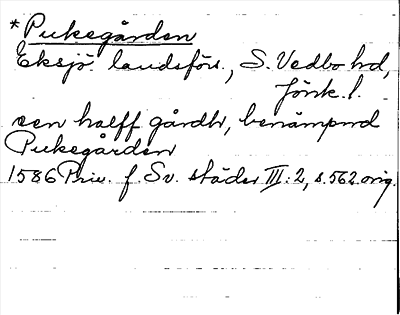 *Pukegården
Eksjö landsförs., S. Vedbo hd,
Jönk. l.
een halff gårdh, benämpnd
Pukegården
1586 Priv. f. Sv. städer III:2, s. 562 orig.